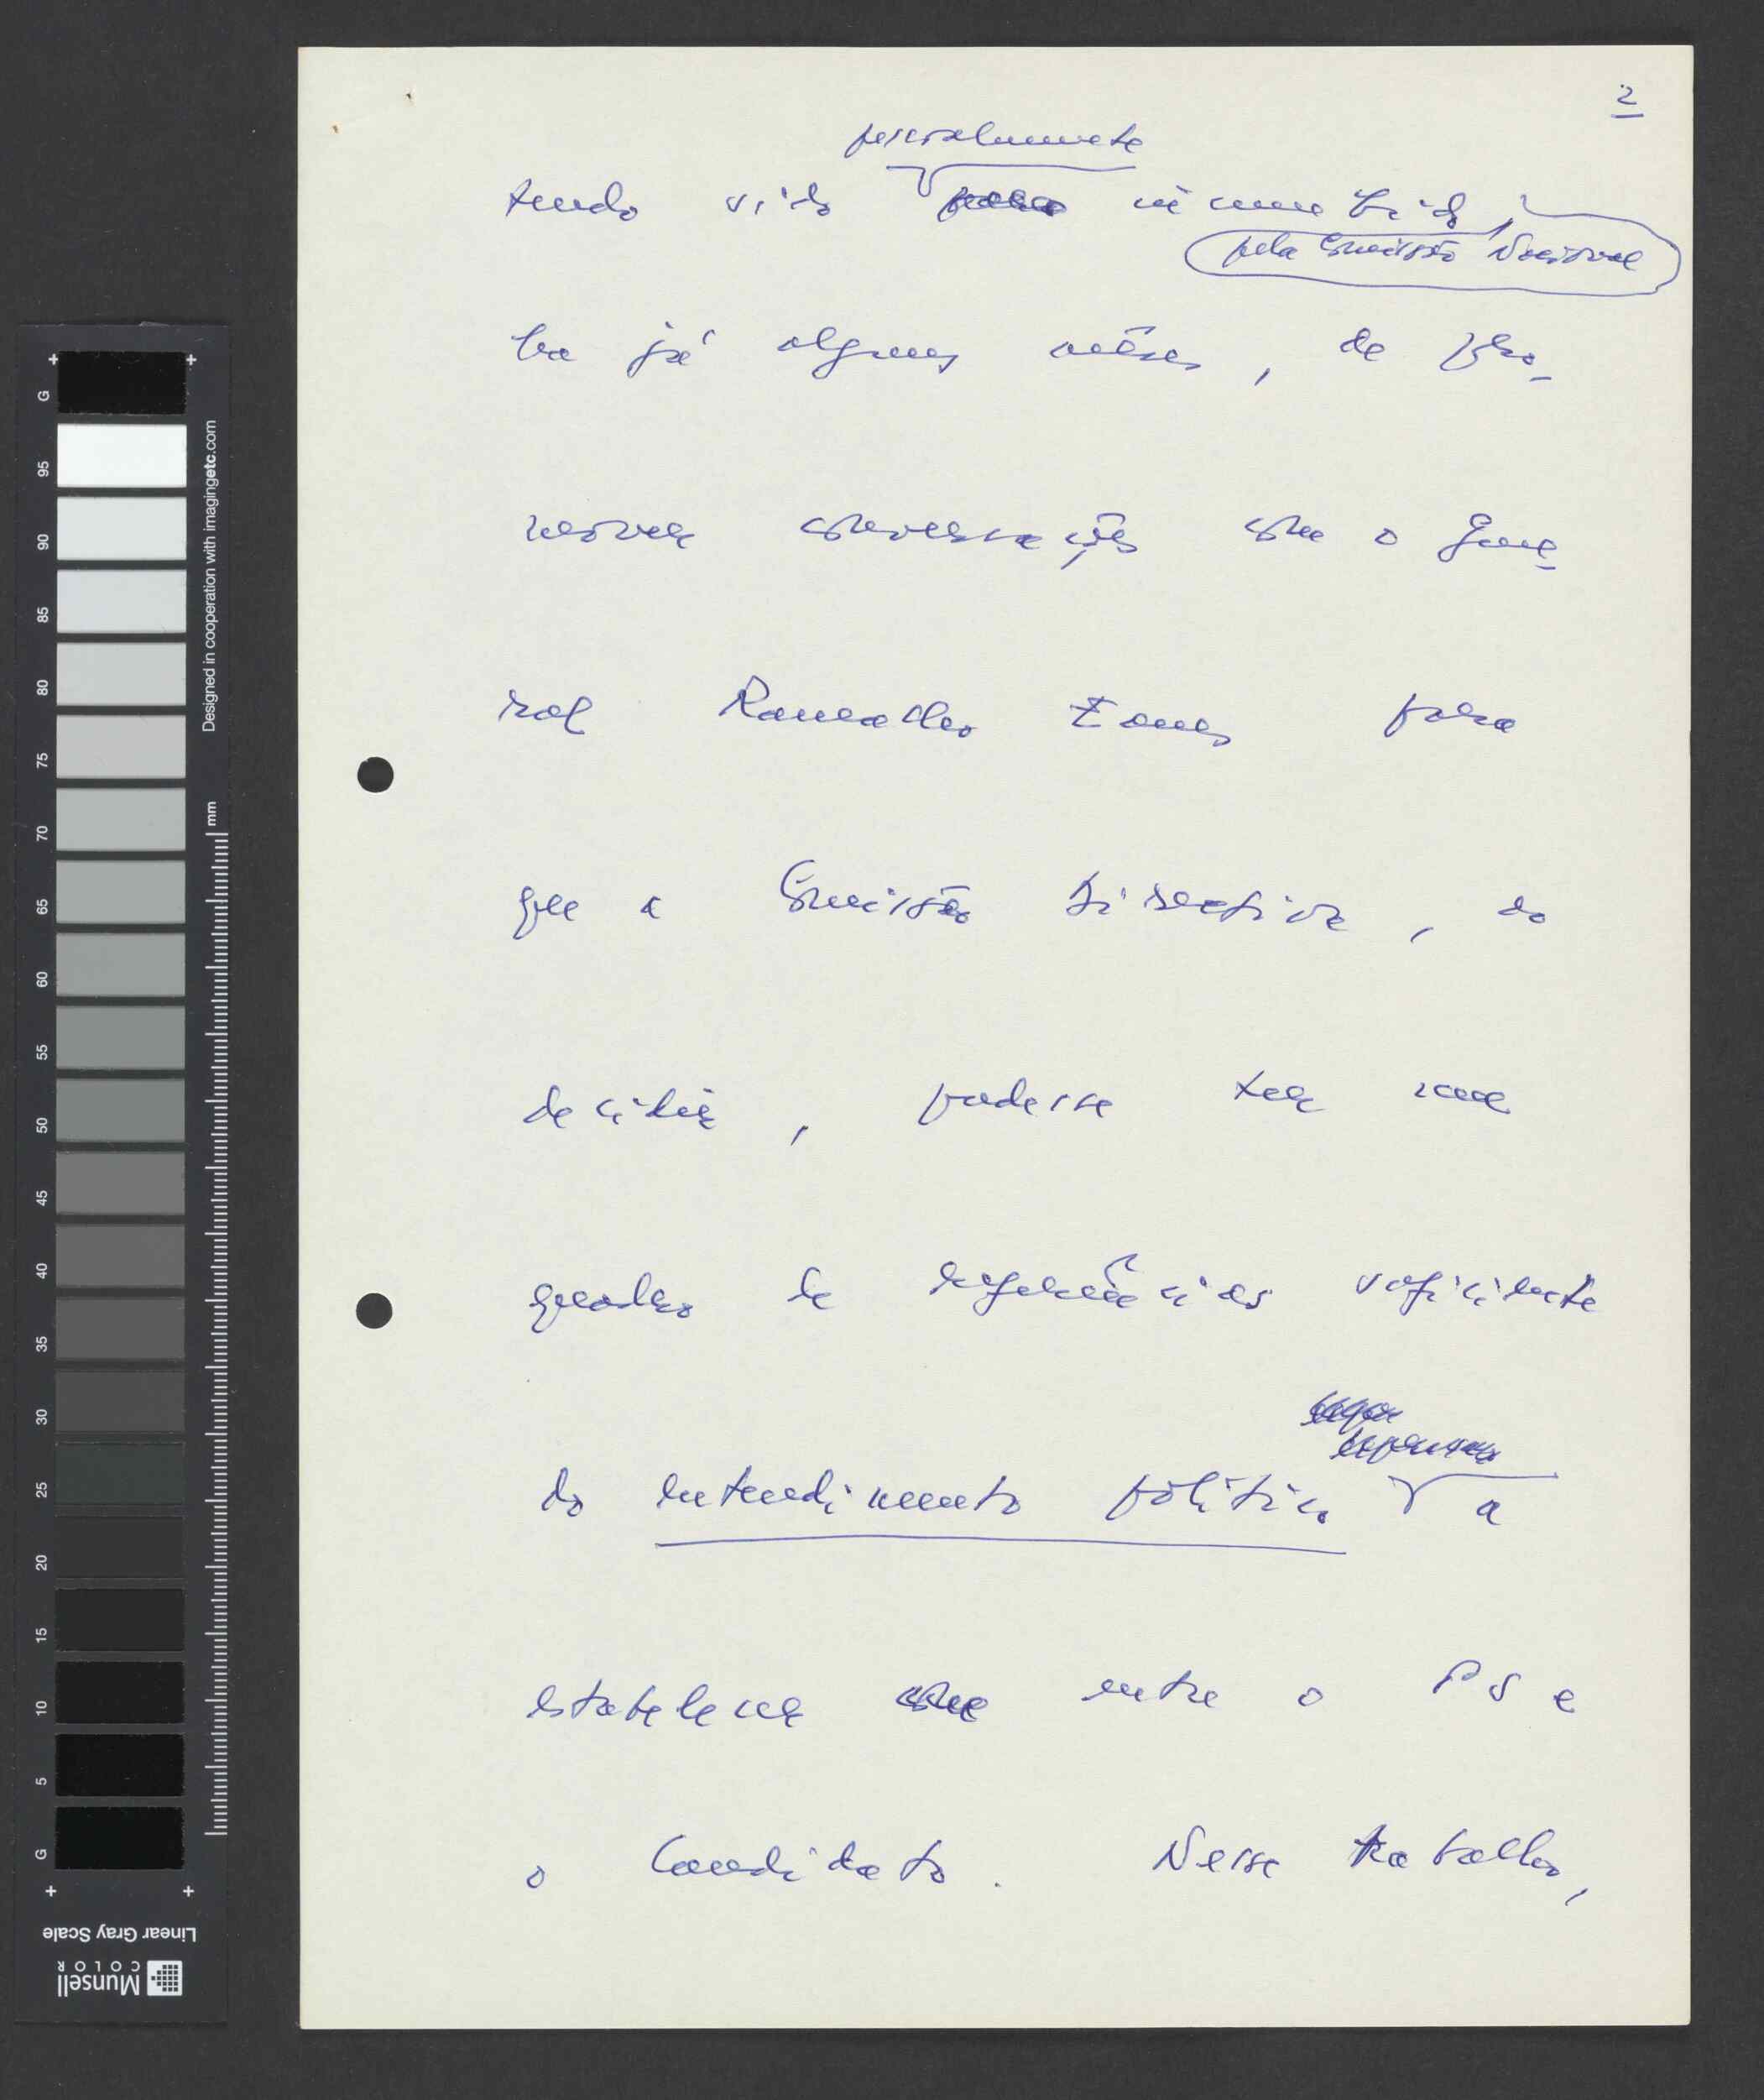 2
pessoalmente
tendo sido para incumbido,
pela Comissão Nacional
ha já alguns mêses, de pro-
mover conversações com o Gene-
ral Ramalho Eanes para
que a Comissão Directiva, ao
decidir, pudesse ter um
quadro de referências suficiente
do entendimento político a
estabelecer com entre o PS e
o Candidato. Nesse trabalho,
G
95
90
85
80
75
70
65
60
55
50
45
40
35
30
25
20
15
10
5
G
Designed in cooperation with imagingetc.com
mm
Linear Gray Scale
Munsell
COLOR